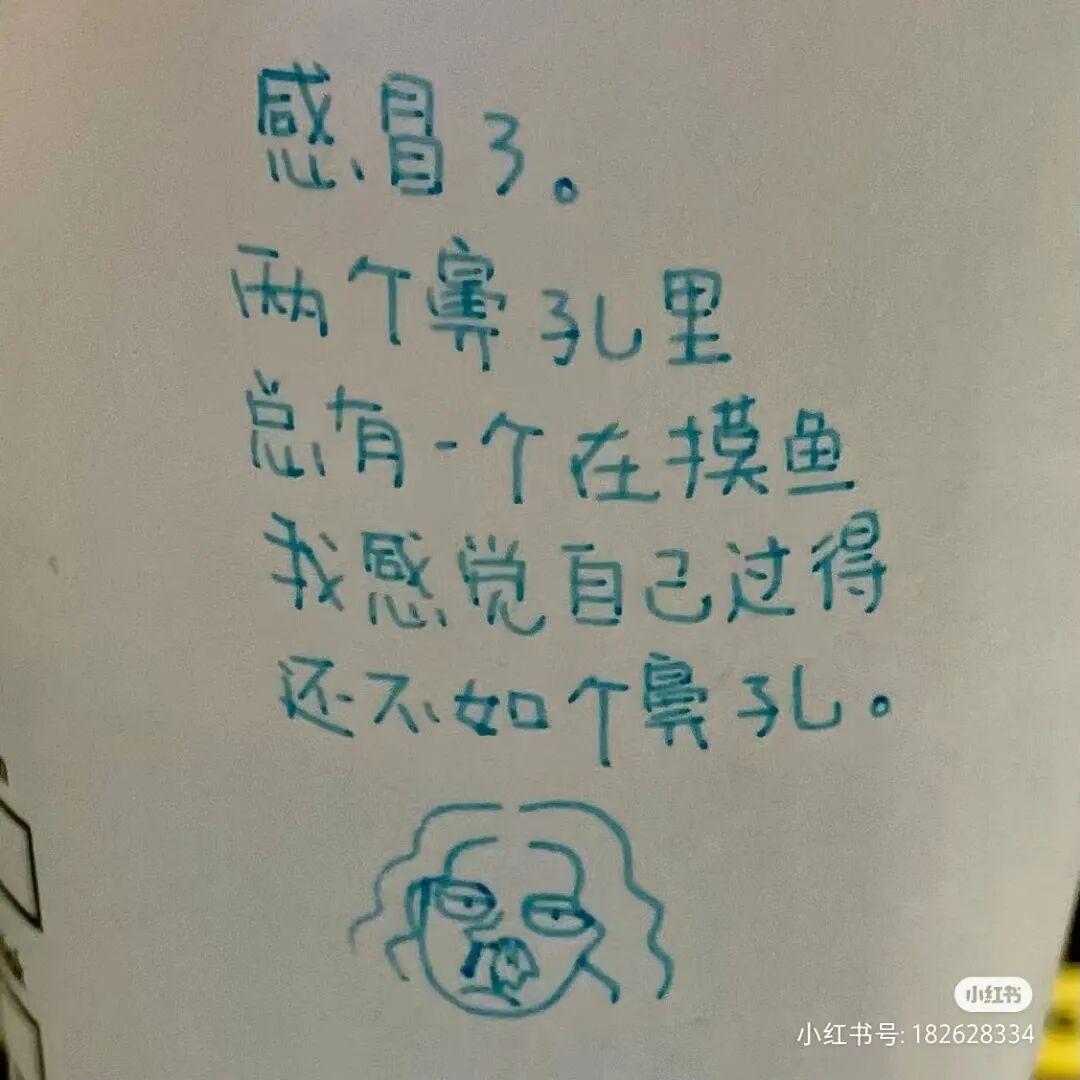 感冒了。
两个鼻孔里
总有一个在摸鱼
我感觉自己过得
还不如个鼻孔。
小红书
小红书号: 182628334